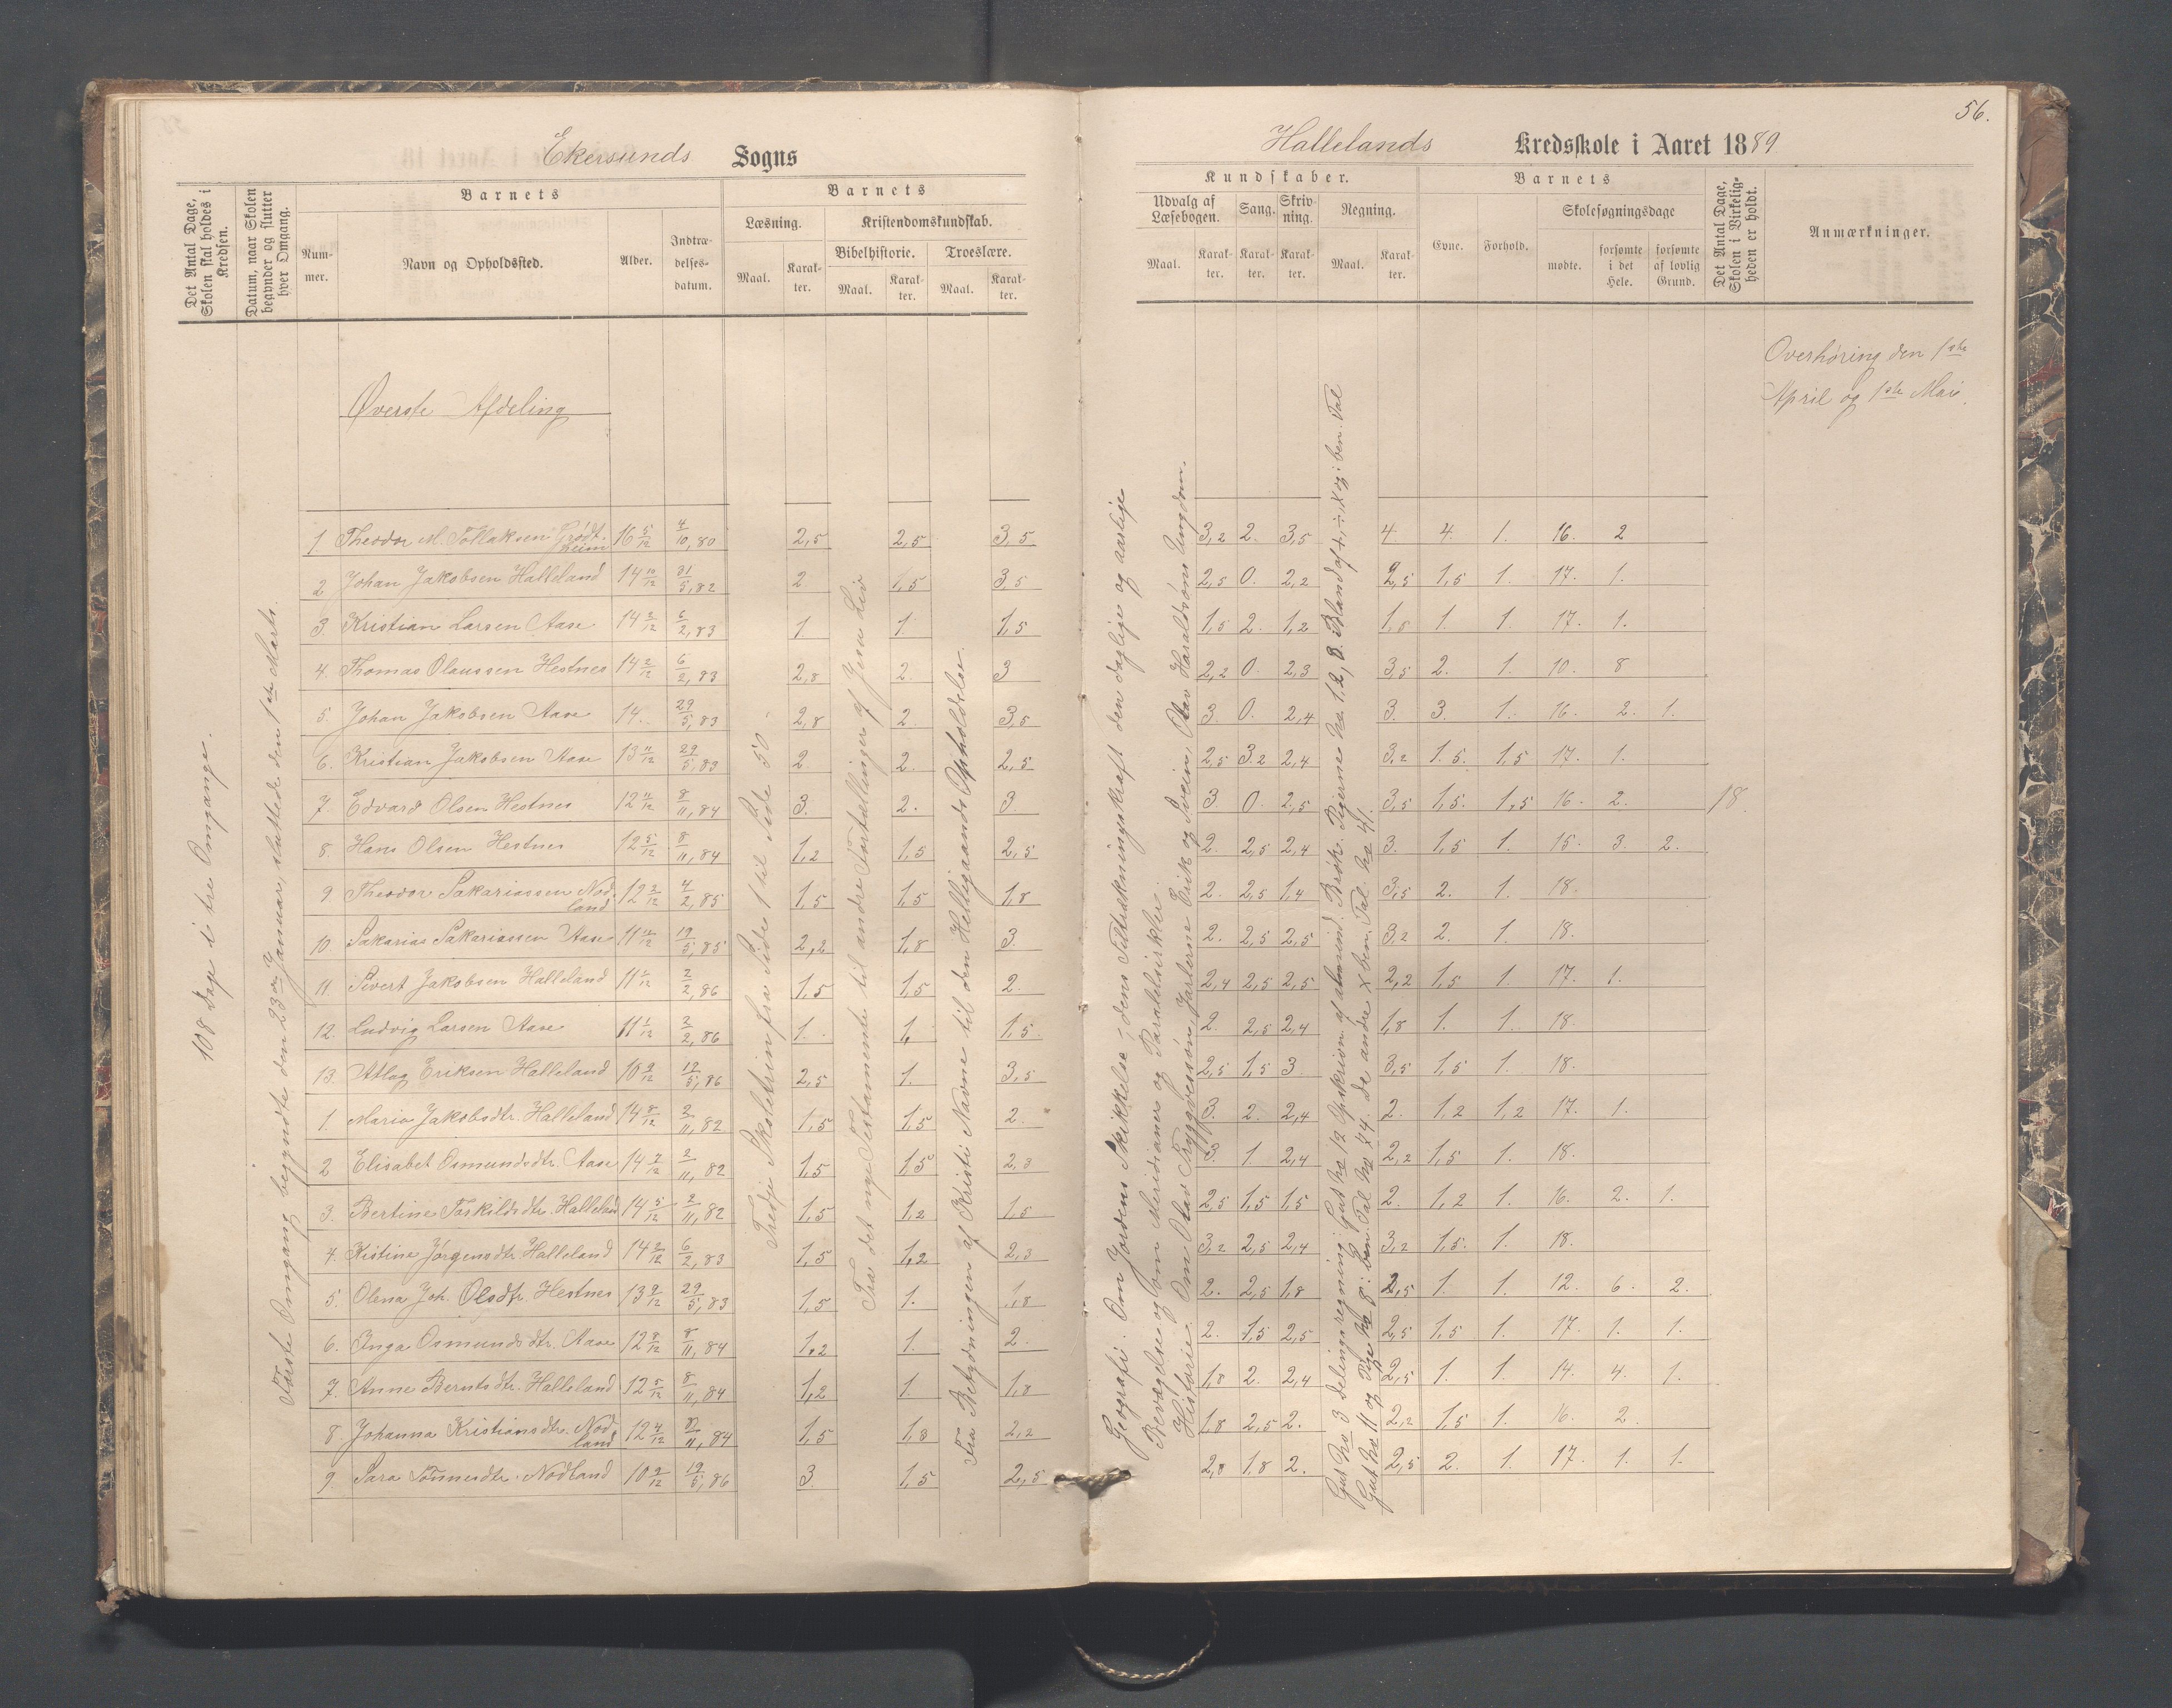 56.
Ekersunds Sogns
Hallelands Kredsskole i Aaret 1889
Det Antal Dage, Skolen skal holdes i Kredsen.
Datum, naar Skolen begynder og slutter hver Omgang.
Barnets
Nummer.
Navn og Opholdssted.
Alder.
Indtrædelsesdatum.
Barnets
Læsning.
Maal.
Karakter.
Kristendomskundskab.
Bibelhistorie.
Maal.
Karakter.
Troeslære.
Maal.
Karakter.
Kundskaber.
Udvalg af Læsebogen.
Maal.
Karakter.
Sang.
Karakter.
Skrivning.
Karakter.
Regning.
Maal.
Karakter.
Barnets
Evne.
Forhold.
Skolesøgningsdage
mødte.
forsømte i det Hele.
forsømte af lovlig Grund.
Det Antal Dage, Skolen i Virkeligheden er holdt.
Anmærkninger.
Overhøring den 1ste
April og 1ste Mai.
Øverste Afdeling
108 Dage i tre Omgange.
Første Omgang begyndte den 23de Januar, sluttede den 1ste Marts.
Tredje Skoletrin fra Side 1 til Side 50
Fra det nye Testamente til andre Fortællinger af Jesu Liv
Fra Betydningen af Kristi Navne til den Helligaands Opholdelse.
Geografi: Om Jordens Skikkelse, dens Tiltrækningskraft den daglige og aarlige
Bevægelse og om Meridianer og Paralelsirkler.
Historie. Om Olav Tryggvesøn, Jarlerne Erik og Svein, Olav Haraldsøns Ungdom.
1 Theodor M. Tollaksen Grødtheim 16 5/12 4/10,80 2,5 2,5 3,5 3,2 2. 3,5 4. 4. 1. 16. 2
2 Johan Jakobsen Halleland 14 10/12 31/5,82 2 1,5 3,5 2,5 0. 2,2 2,5 1,5 1. 17. 1.
3. Kristian Larsen Aase 14 2/12 6/2,83 1 1. 1,5 1,5 2. 1,2 1,5 1. 1. 17. 1.
4. Thomas Olaussen Hestnes 14 2/12 6/2,83 2,8 2. 3 2,2 0. 2,3 3,5 2. 1. 10. 8
5. Johan Jakobsen Aase 14. 29/5,83 2,8 2. 3,5 3. 0. 2,4 3. 3. 1. 16. 2. 1.
6. Kristian Jakobsen Aase 13 11/12 29/5,83 2. 2. 2,5 2,5 3,2 2,4 3,2 1.5. 1,5 17. 1.
7. Edvard Olsen Hestnes 12 11/12 8/11,84 3. 2. 3. 3. 0. 2,5 3,5 1,5. 1,5 16. 2. 18.
8. Hans Olsen Hestnes 12 5/12 8/11,84 1,2 1,5 2,5 2. 2,5 2,4 3. 1,5 1. 15. 3. 2.
9. Theodor Sakariassen Nodland 12 2/12 4/2,85 1,5 1,5 1,8 2. 2,5 1,4 3,5 2. 1. 18.
10 Sakarias Sakariassen Aase 11 10/12 19/5,85 2,2 1,8 3. 2. 2,5 2,5 3,2 2. 1. 18.
11. Sivert Jakobsen Halleland 11 1/12 2/2,86 1,5 1,5 2. 2,4 2,5 2,5 2,2 1,5 1. 17. 1.
12. Ludvig Larsen Aase 11 1/12 2/2,86 1. 1. 1,5 2. 2,5 2,4 1,8 1. 1. 18.
13. Atlag Eriksen Halleland 10 9/12 19/5,86 2,5 1. 3,5 2,5 1,5 3. 3,5 1,5 1. 18.
1. Maria Jakobsdtr. Halleland 14 8/12 2/11,82 1,5 1,5 2. 3. 2. 2,4 2. 1,2 1,2 17. 1.
2 Elisabet Osmundsdtr. Aase 14 7/12 2/11,82 1,5 1,5 2,3 3. 1 2,4 2,2 1,5 1. 18.
3. Bertine Torkildsdtr. Halleland 14 5/12 2/11,82 1,5 1,2 1,5 2,5 1,5 1,5 2. 1,2 1. 16. 2. 1.
4. Kistine Jørgensdtr. Halleland 14 2/12 6/2,83 1,5 1,2 2,3 3,2 2,5 2,4 3,2 1,5. 1. 18.
5. Olena Joh. Olsdtr. Hestnes 13 9/12 29/5,83 1,5 1. 1,8 2. 2,5 1,8 2,5 1. 1. 12. 6. 2.
6. Inga Osmundsdtr. Aase 12 8/12 8/11,84 1,2 1. 2 2. 1,5 2,5 2,5 1,5 1. 17. 1. 1.
7. Anne Berntsdtr. Halleland 12 5/12 8/11,84 1,2 1. 1,8 1,8 2. 2,4 2,5 1. 1. 14. 4. 1.
8. Johanna Kristiansdtr. Nodland 12 4/12 8/11,84 1,5 1,8 2,2 1,8 2,5 2. 2,2 1,5 1. 16. 2.
9. Sara Tønnesdtr. Nodland 10 9/12 19/5,86 3. 1,5 2,5 2,8 1,8 2. 2,5 2. 1. 17. 1. 1.
Gut No 3 delingsregning: Gut No 12 Opskrivn. af almind. Brøk. Pigerne No 1, 2, 8. Bland. af + ÷ × og : ben. Tal
Gut No 11 og Pige No 8 : ben. Tal No 4. de andre × ben. Tal.